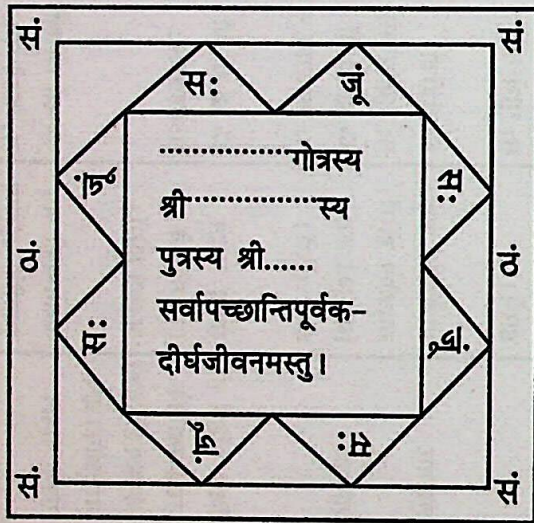 सं
सं
सः
जूं
जूं
सः
ठं
ठं
सः
जूं
जूं
सः
सं
सं
...............गोत्रस्य
श्री...............स्य
पुत्रस्य श्री......
सर्वापच्छान्तिपूर्वक-
दीर्घजीवनमस्तु।